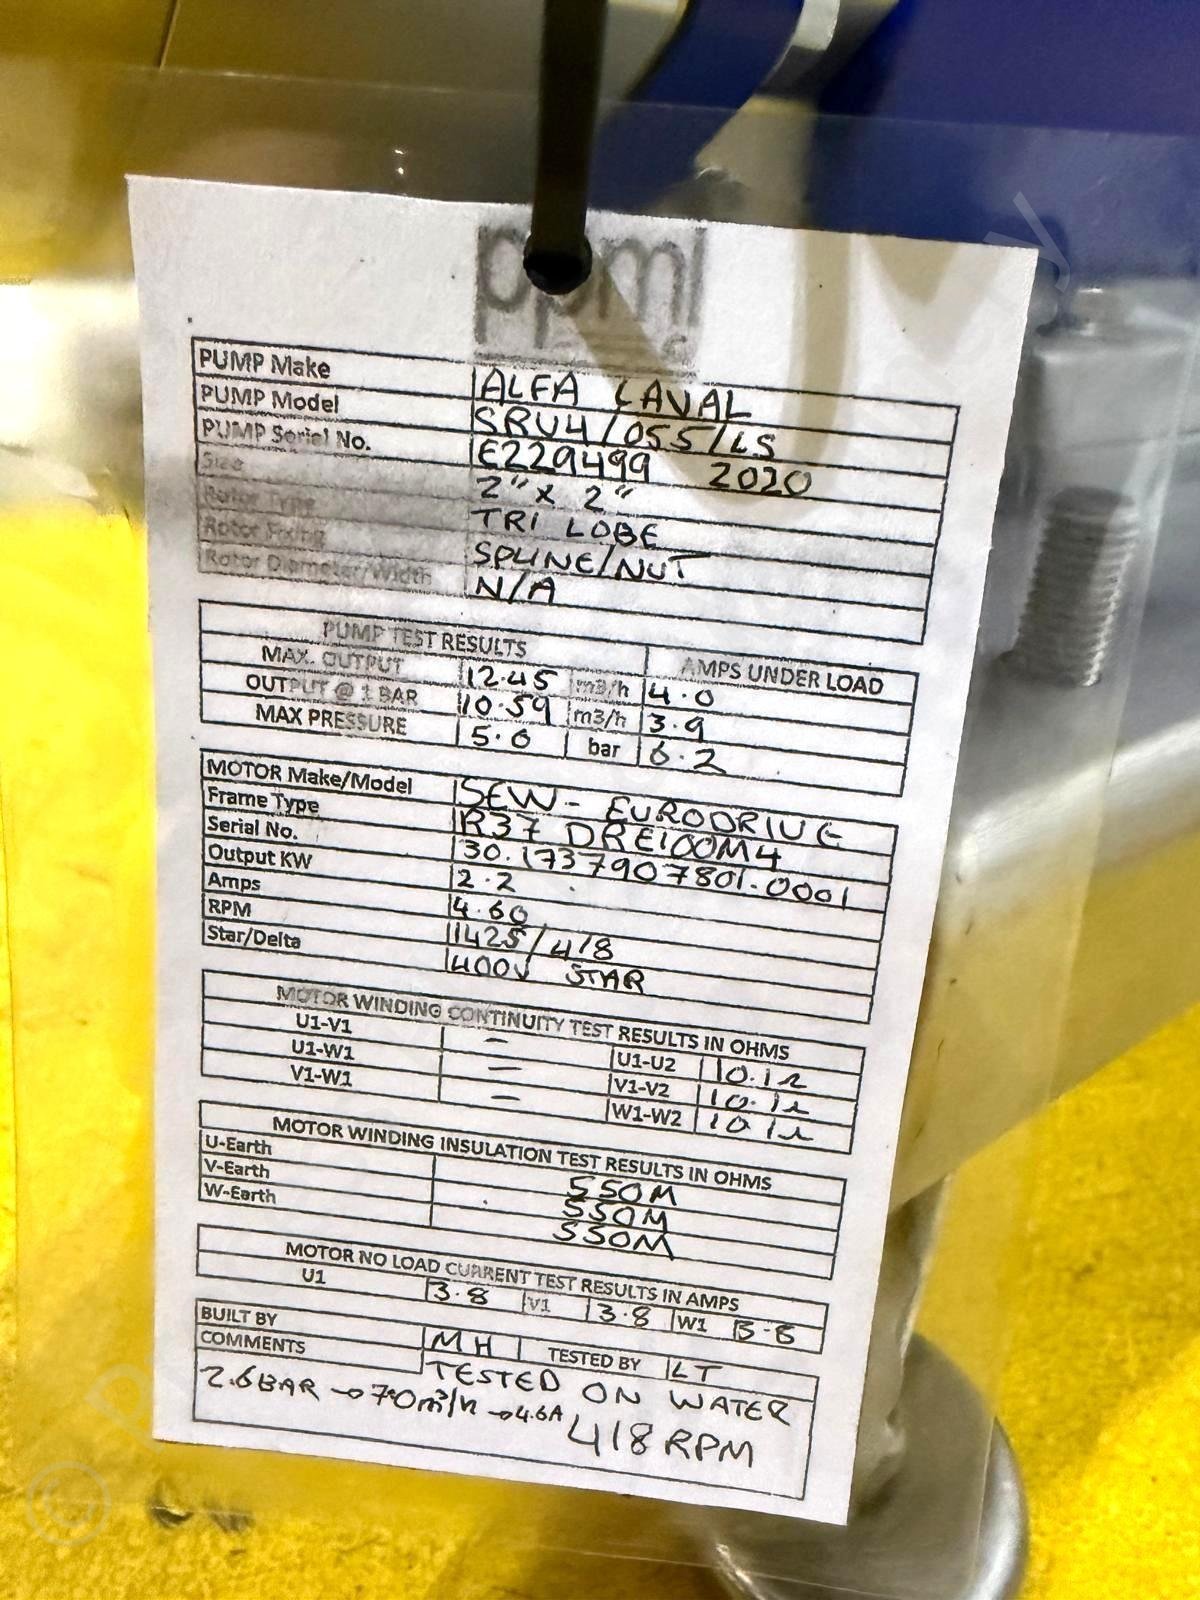 ppml
PUMP Make ALFA LAVAL
PUMP Model SRU4/055/LS
PUMP Serial No. E229499 2020
Size 2" x 2"
Rotor Type TRI LOBE
Rotor Fixing SPLINE/NUT
Rotor Diameter/Width N/A
PUMP TEST RESULTS AMPS UNDER LOAD
MAX. OUTPUT 12.45 m3/h 4.0
OUTPUT @ 1 BAR 10.59 m3/h 3.9
MAX PRESSURE 5.0 bar 6.2
MOTOR Make/Model SEW - EURODRIVE
Frame Type R37 DRE100M4
Serial No. 30.1737907801.0001
Output KW 2.2
Amps 4.60
RPM 1425/418
Star/Delta 400V STAR
MOTOR WINDING CONTINUITY TEST RESULTS IN OHMS
U1-V1 - U1-U2 10.1Ω
U1-W1 - V1-V2 10.1Ω
V1-W1 - W1-W2 10.1Ω
MOTOR WINDING INSULATION TEST RESULTS IN OHMS
U-Earth 550M
V-Earth 550M
W-Earth 550M
MOTOR NO LOAD CURRENT TEST RESULTS IN AMPS
U1 3.8 V1 3.8 W1 3.8
BUILT BY MH TESTED BY LT
COMMENTS TESTED ON WATER
2.6BAR → 7.0m³/h → 4.6A 418 RPM